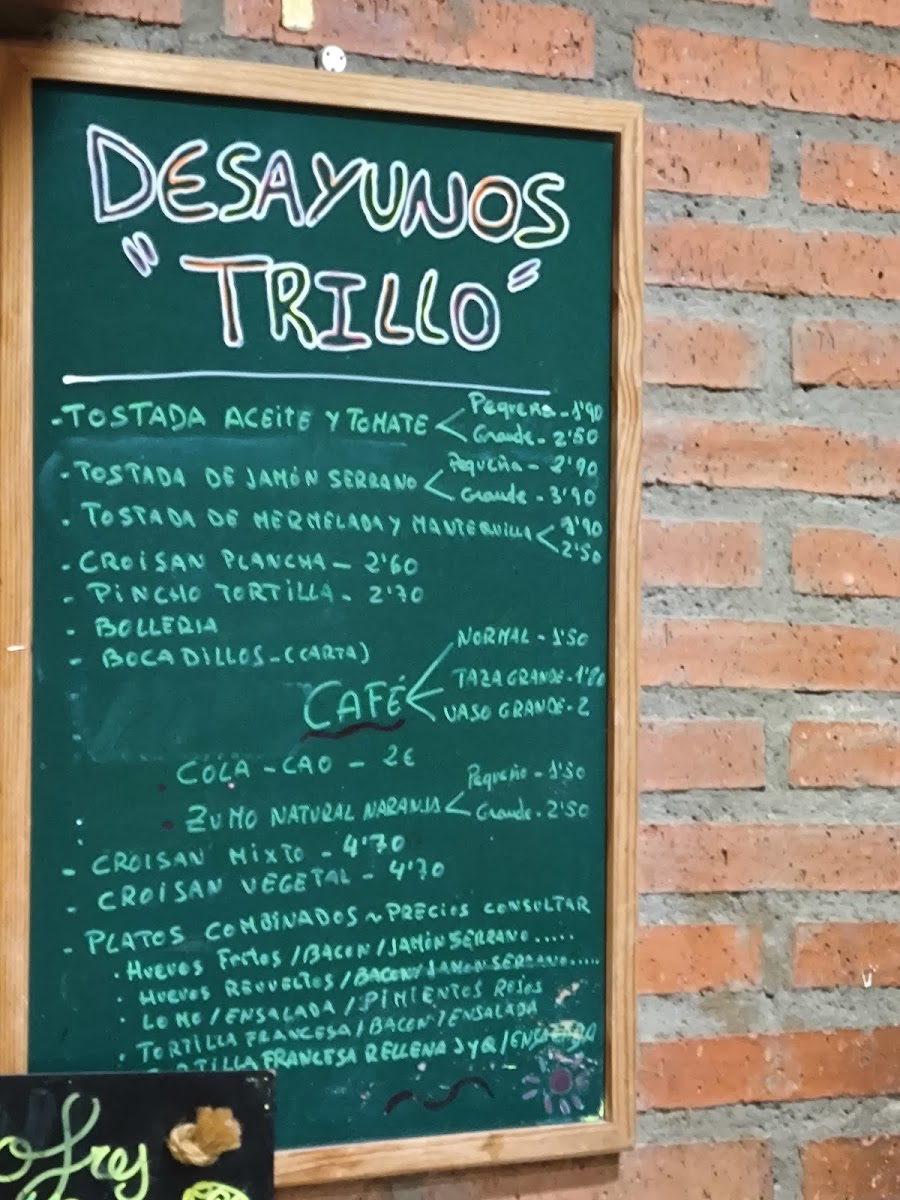 DESAYUNOS
"TRILLO"
-TOSTADA ACEITE Y TOMATE < Pequeña - 1'90
Grande - 2'50
- TOSTADA DE JAMÓN SERRANO < Pequeña - 2'90
Grande - 3'90
- TOSTADA DE MERMELADA Y MANTEQUILLA < 1'90
2'50
- CROISAN PLANCHA - 2'60
- PINCHO TORTILLA - 2'70
- BOLLERIA
- BOCADILLOS - (CARTA)
CAFÉ < NORMAL - 1'50
TAZA GRANDE -
VASO GRANDE - 2
COLA - CAO - 2€
ZUMO NATURAL NARANJA < Pequeño - 1'50
Grande - 2'50
- CROISAN MIXTO - 4'70
- CROISAN VEGETAL - 4'70
- PLATOS COMBINADOS ~ PRECIOS CONSULTAR
· HUEVOS FRITOS / BACON / JAMÓN SERRANO.....
· HUEVOS REVUELTOS / BACON / JAMÓN SERRANO.....
· LOMO / ENSALADA / PIMIENTOS ROJOS
· TORTILLA FRANCESA / BACON / ENSALADA
TORTILLA FRANCESA RELLENA J y Q / ENSALADA
ofres